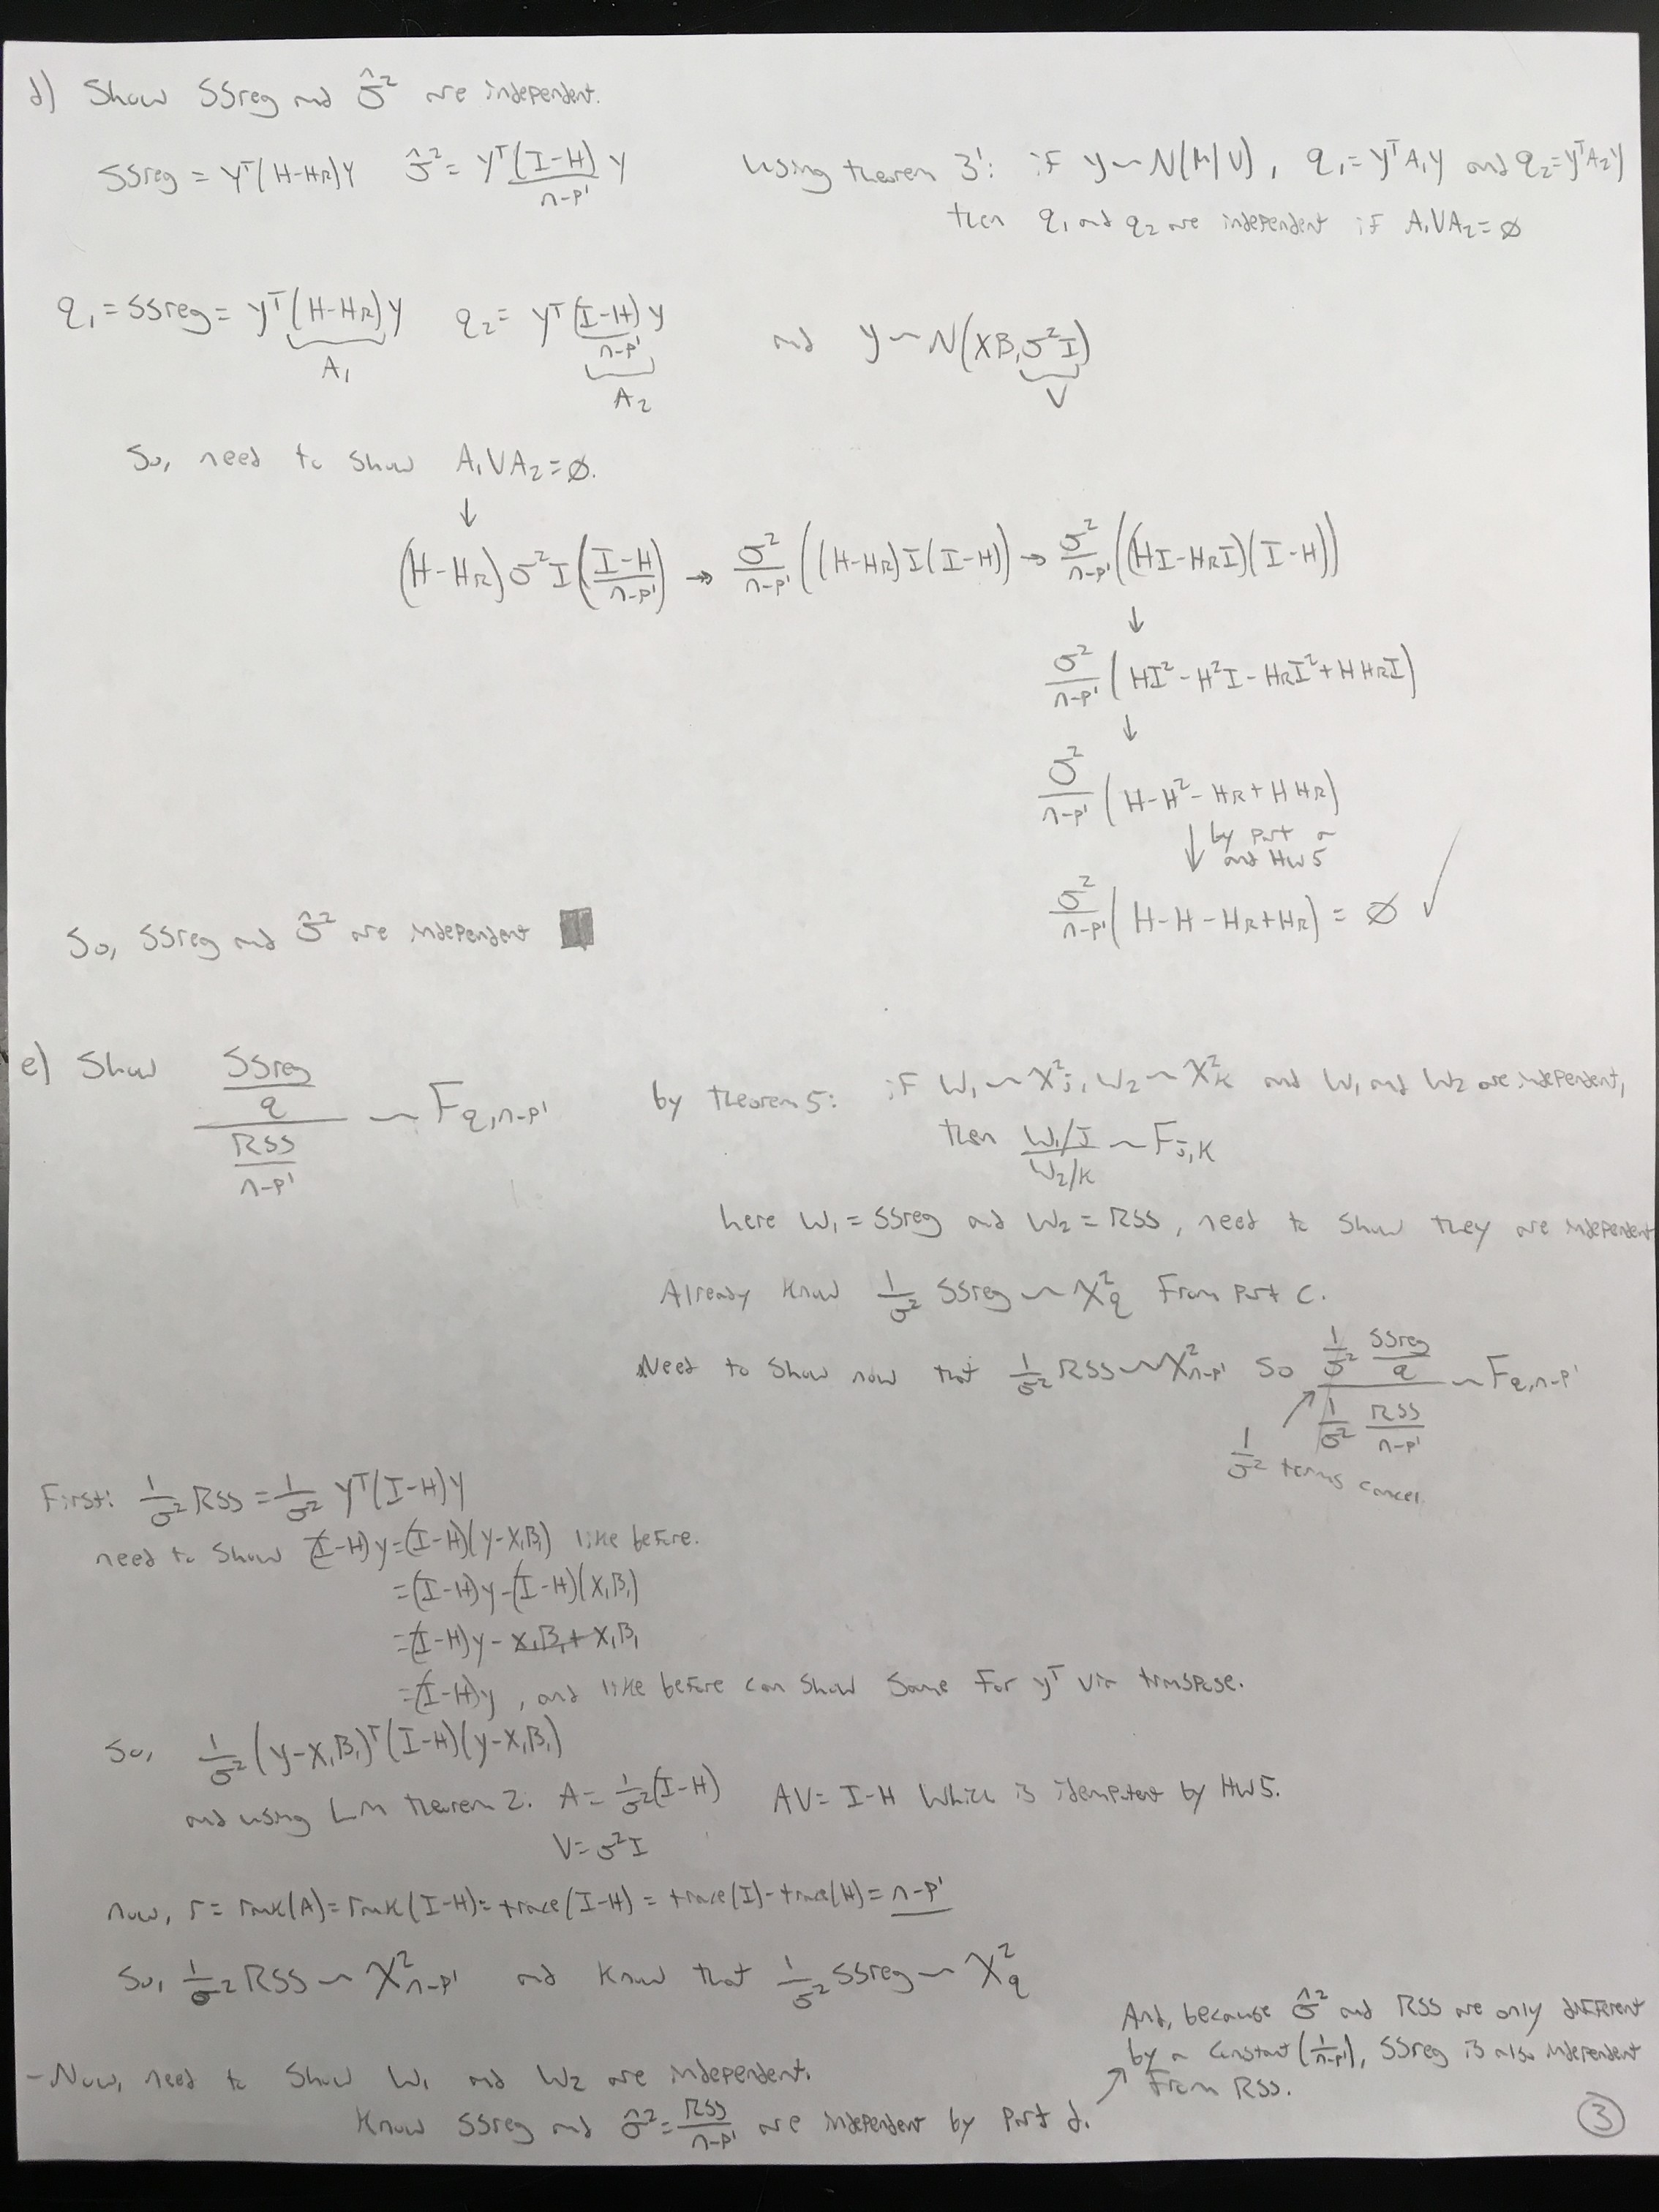 d) Show SSreg and σ̂² are independent.
SSreg = Yᵀ(H-H_R)Y   σ̂² = Yᵀ(I-H)/(n-p') Y   Using theorem 3': if y~N(M,V), q₁=yᵀA₁y and q₂=yᵀA₂y
then q₁ and q₂ are independent if A₁VA₂=∅
q₁ = SSreg = yᵀ(H-H_R)y   q₂ = yᵀ(I-H)/(n-p') y   and y~N(XB,σ²I)
A₁   A₂   V
So, need to show A₁VA₂=∅.
↓
(H-H_R)σ²I((I-H)/(n-p')) → σ²/(n-p') ((H-H_R)I(I-H)) → σ²/(n-p') ((HI-H_RI)(I-H))
↓
σ²/(n-p') (HI²-H²I-H_RI²+HH_RI)
↓
σ²/(n-p') (H-H²-H_R+HH_R)
↓ by part a
and HW5
σ²/(n-p') (H-H-H_R+H_R) = ∅ ✓
So, SSreg and σ̂² are independent ■
e) Show (SSreg/q)/(RSS/(n-p')) ~ F_q,n-p'   by theorem 5: if W₁~X²_j, W₂~X²_K and W₁ and W₂ are independent,
then (W₁/J)/(W₂/K) ~ F_j,K
here W₁ = SSreg and W₂ = RSS, need to show they are independent
Already know 1/σ² SSreg ~ X²_q From part c.
Need to show now that 1/σ² RSS ~ X²_n-p' so (1/σ² SSreg/q)/(1/σ² RSS/(n-p')) ~ F_q,n-p'
1/σ² terms cancel.
First: 1/σ² RSS = 1/σ² Yᵀ(I-H)Y
need to show (I-H)y=(I-H)(y-X₁B₁) like before.
=(I-H)y-(I-H)(X₁B₁)
=(I-H)y-X₁B₁+X₁B₁
=(I-H)y, and like before can show same for yᵀ via transpose.
So, 1/σ² (y-X₁B₁)ᵀ(I-H)(y-X₁B₁)
and using LM theorem 2: A = 1/σ²(I-H)   AV = I-H which is idempotent by HW5.
V = σ²I
now, r = rank(A)=rank(I-H)=trace(I-H)=trace(I)-trace(H)=n-p'
So, 1/σ² RSS ~ X²_n-p' and know that 1/σ² SSreg ~ X²_q
-Now, need to show W₁ and W₂ are independent.
Know SSreg and σ̂²=RSS/(n-p') are independent by part d.
And, because σ̂² and RSS are only different
by a constant (1/(n-p')), SSreg is also independent
From RSS.
3